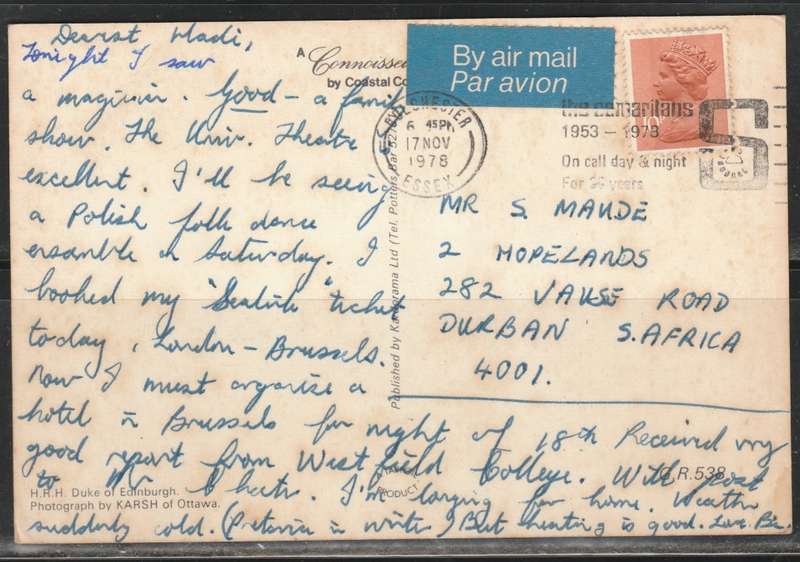 Dearest Madi,
Tonight I saw
a magician. Good - a family
show. The Univ. Theatre is
excellent. I'll be seeing
a Polish folk dance
ensemble on Saturday. I
booked my "Sealink" ticket
today, London - Brussels.
Now I must organise a
hotel in Brussels for night of 18th Received very
good report from Westfield College. Will post
to Mr I'm longing for home. Weather
suddenly cold. (Pretoria in winter) But heating is good. Love
A Connoisse
by Coastal Co
By air mail
Par avion
COLCHESTER
6 45PM
17 NOV
1978
ESSEX
the samaritans
1953 - 1978
On call day & night
For 25 years
MR S. MAUDE
2 HOPELANDS
282 VAUSE ROAD
DURBAN S.AFRICA
4001.
Published by Kardorama Ltd (Tel. Potters Bar 52
H.R.H. Duke of Edinburgh.
Photograph by KARSH of Ottawa.
PRODUCT
R.538